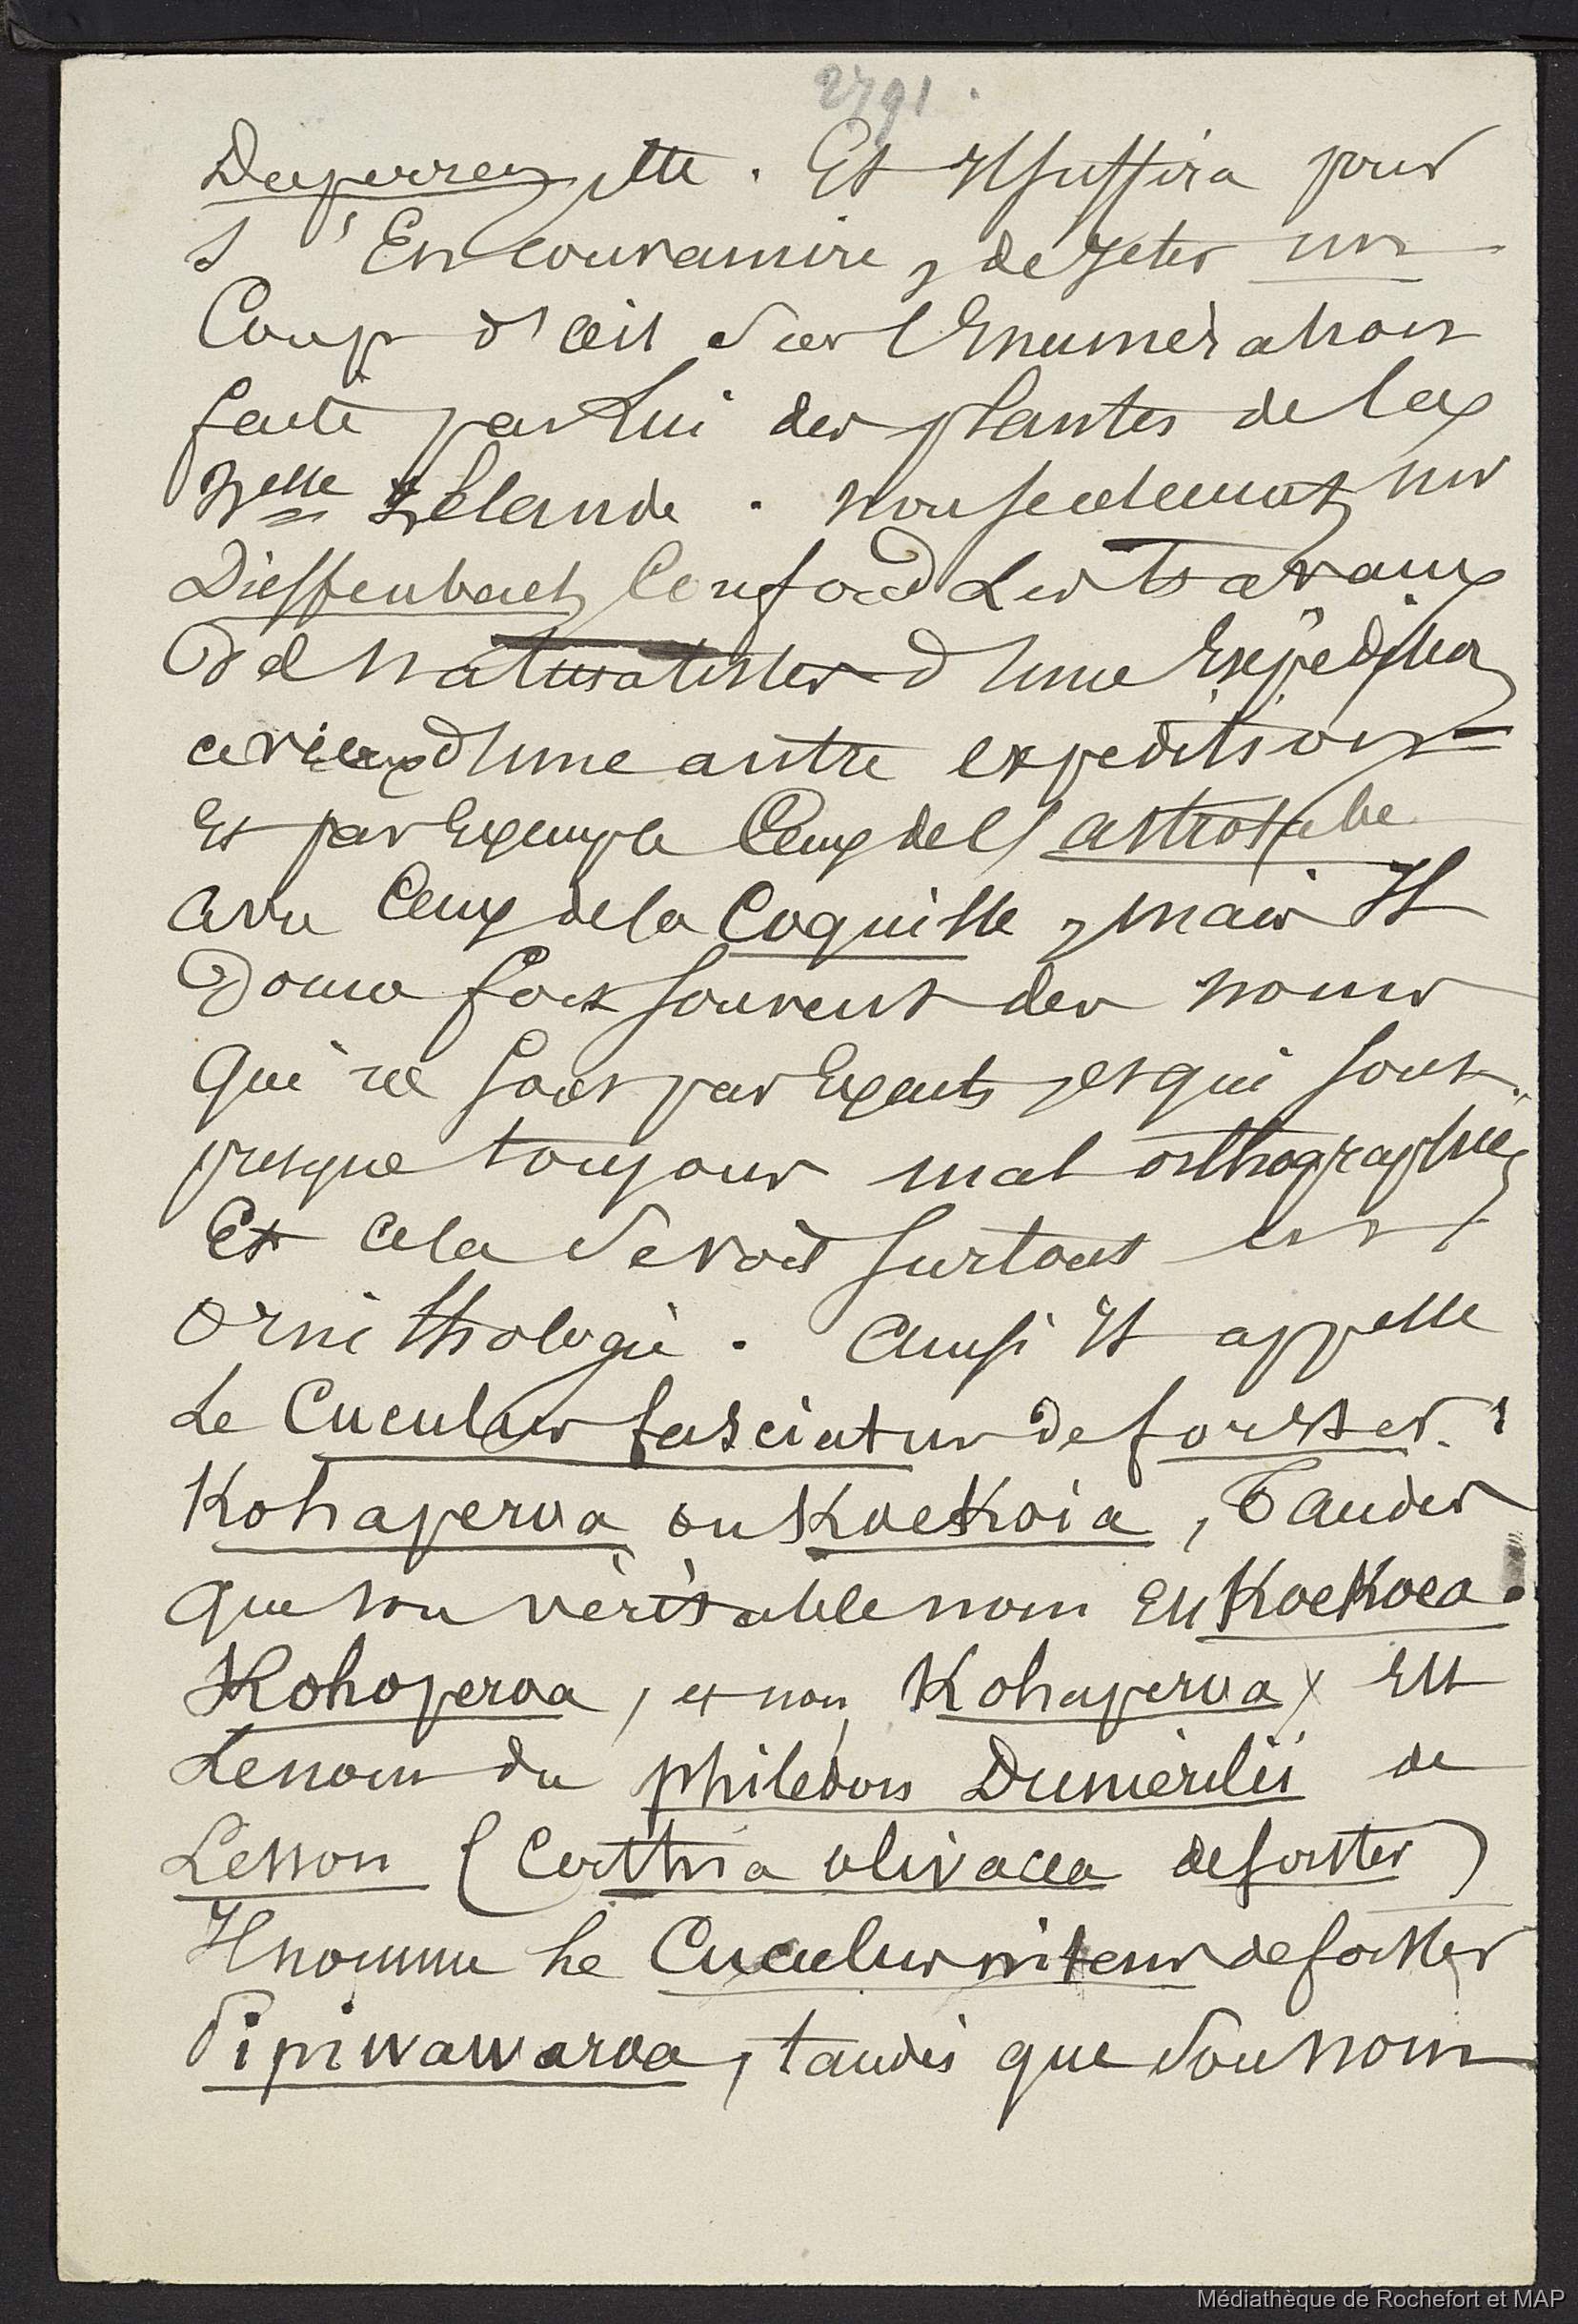 2791.
Duperrey, etc. Et il suffira pour
s'en couvaincre, de jeter un
Coup d'œil sur l'Enumération
faite par lui des plantes de la
Nelle Zélande. non seulement mr
Dieffenbach confond les travaux
de naturalistes d'une Expédition
à ceux d'une autre expedition
Et par Exemple Ceux de l'astrolabe
avec Ceux de la Coquille, mais Il
Donne fort souvent des noms
Qui ne sont pas Exacts, et qui sont
presque toujours mal orthographiés
Et cela se voit surtout en
ornithologie. Ainsi Il appelle
Le Cuculus fasciatus de forster.
Kohaperoa ou Koekoia, Tandis
Que son véritable nom Est Koekoea.
Kohoperoa, et non Kohaperoa, Est
Le nom du philedon Dumerilii de
Lesson (Certhia olivacea de forster)
Il nomme le Cuculus nitens de forster
Pipiwawaroa, tandis que son nom
Médiathèque de Rochefort et MAP